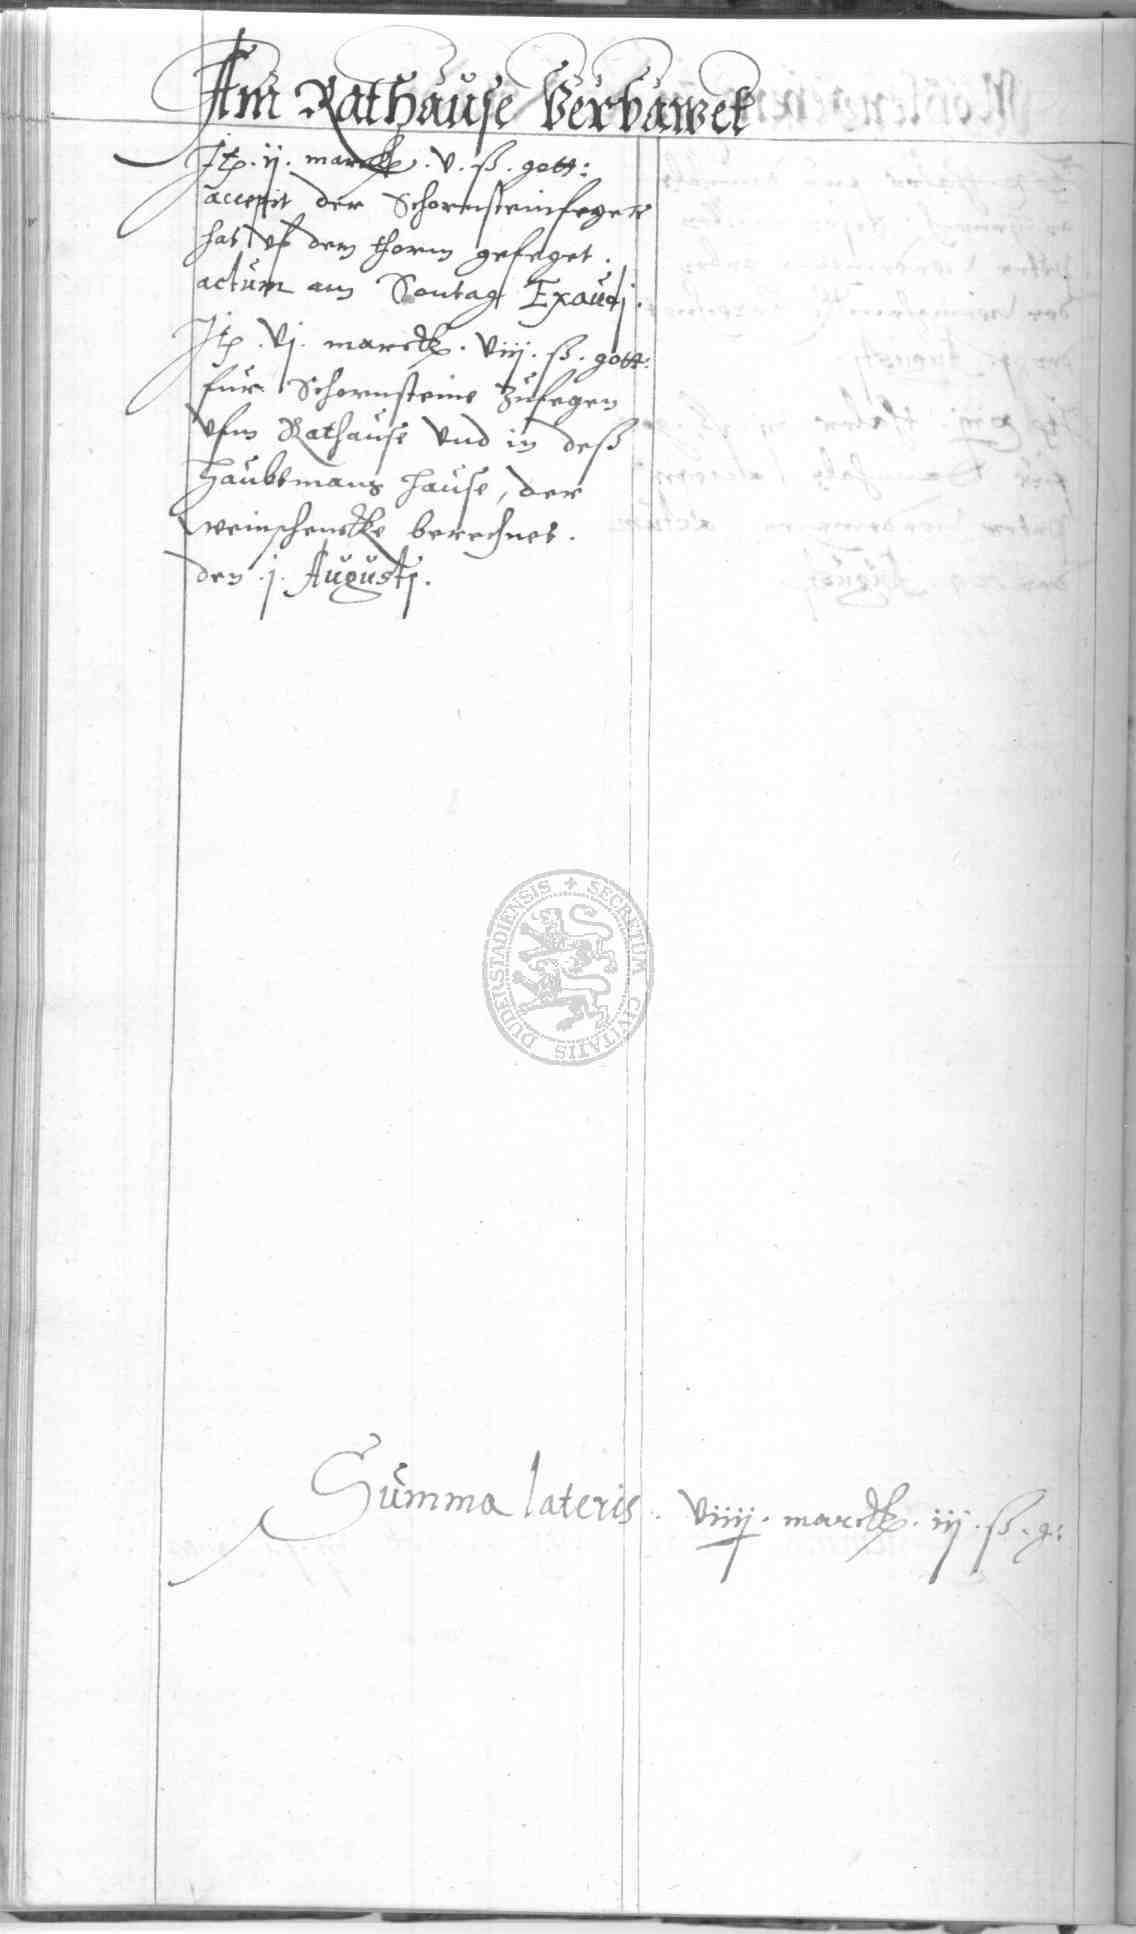 Am Rathause Verbawet
Itē . ij . marck . v . ß . gott:
accepit der Schornsteinfeger
hat vf dem thorm gefeget .
actum am Sontag Exaudj .
Itē . vj . marck . viij . ß . gott:
fur Schornsteine zufegen
vfm Rathause vnd in deß
Haubtmans hause, der
weinschencke berechnet .
den . j . Augustj .
DUDERSTADIENSIS + SECRETUM CIVITATIS
Summa lateris . viiij . marck . iij . ß . g: